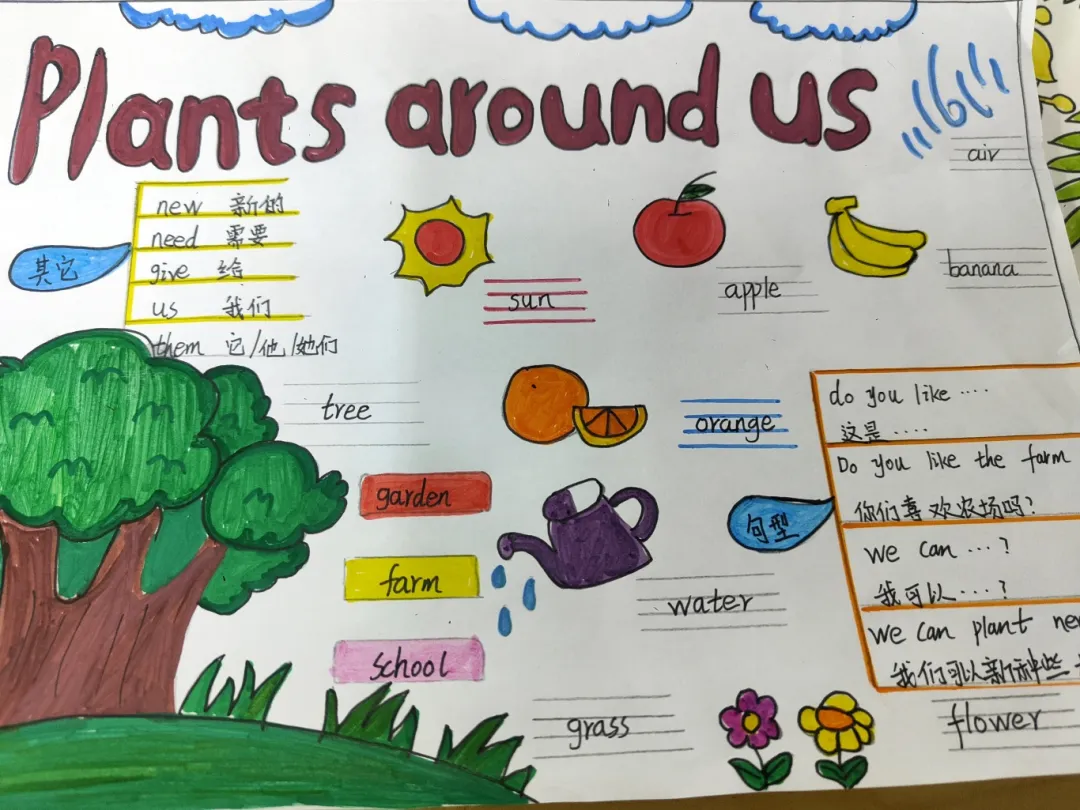 Plants around us
air
其它
new 新的
need 需要
give 给
us 我们
them 它/他/她们
sun
apple
banana
tree
orange
garden
farm
school
water
grass
flower
句型
do you like ....
这是 ....
Do you like the farm
你们喜欢农场吗?
we can ...?
我可以 ...?
we can plant
我们可以新种些